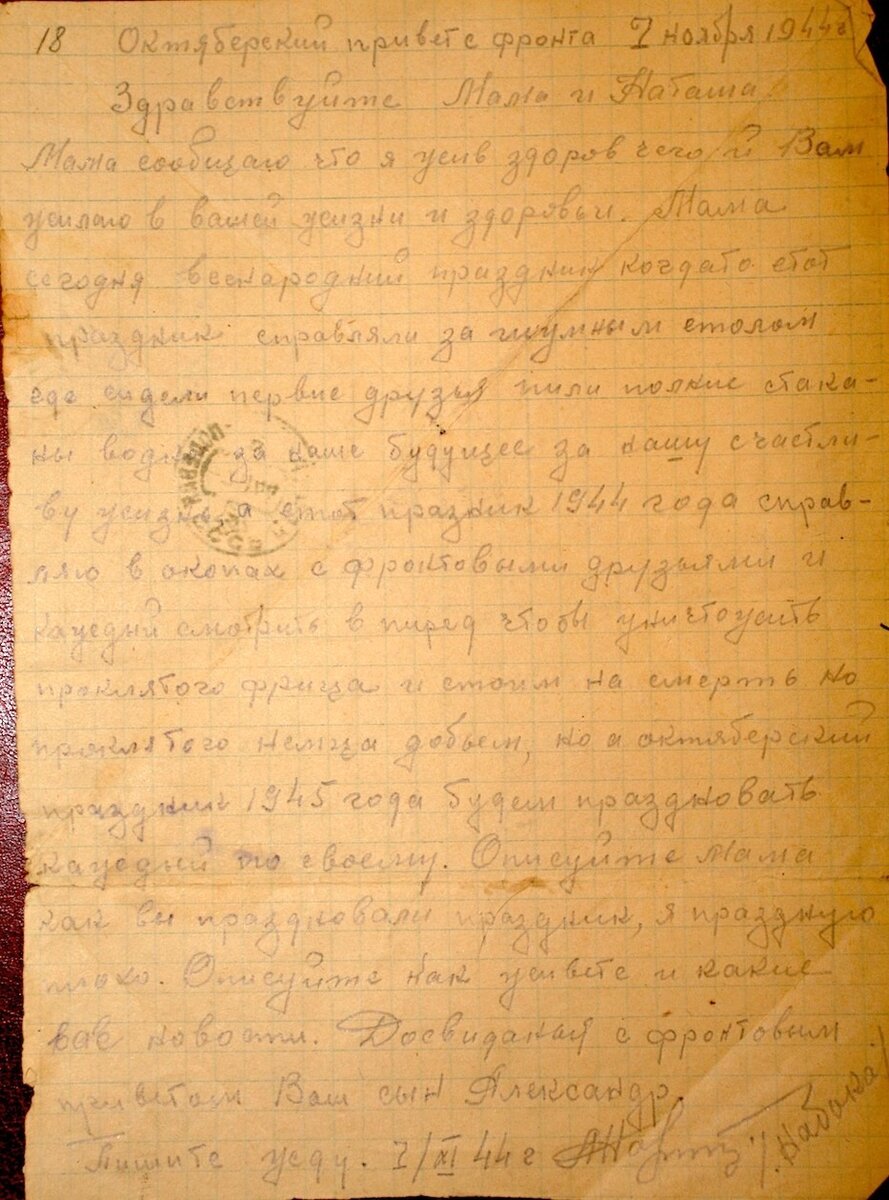 18 Октяберский привет с фронта 7 ноября 1944 г
Здравствуйте Мама и Наташа
Мама сообщаю что я жив здоров чего и Вам
желаю в вашей жизни и здоровьи. Мама
сегодня веснародний праздник когдато етот
праздник справляли за шумным столом
где сидели первие друзья пили полние стака-
ны водки за наше будущее за нашу счастли-
ву жизнь, а етот празник 1944 года справ-
ляю в окопах с фронтовыми друзьями и
каждий смотрить в перед чтобы уничтожить
проклятого фрица и стоим на смерть но
проклятого немца добьем, но а октяберский
праздник 1945 года будем праздновать
каждий по своему. Описуйте Мама
как вы праздновали праздник, я праздную
плохо. Описуйте как живете и какие
вас новости. Досвиданья с фронтовым
приветом Ваш сын Александр.
Пишите жду. 7/XI 44 г /Набока/